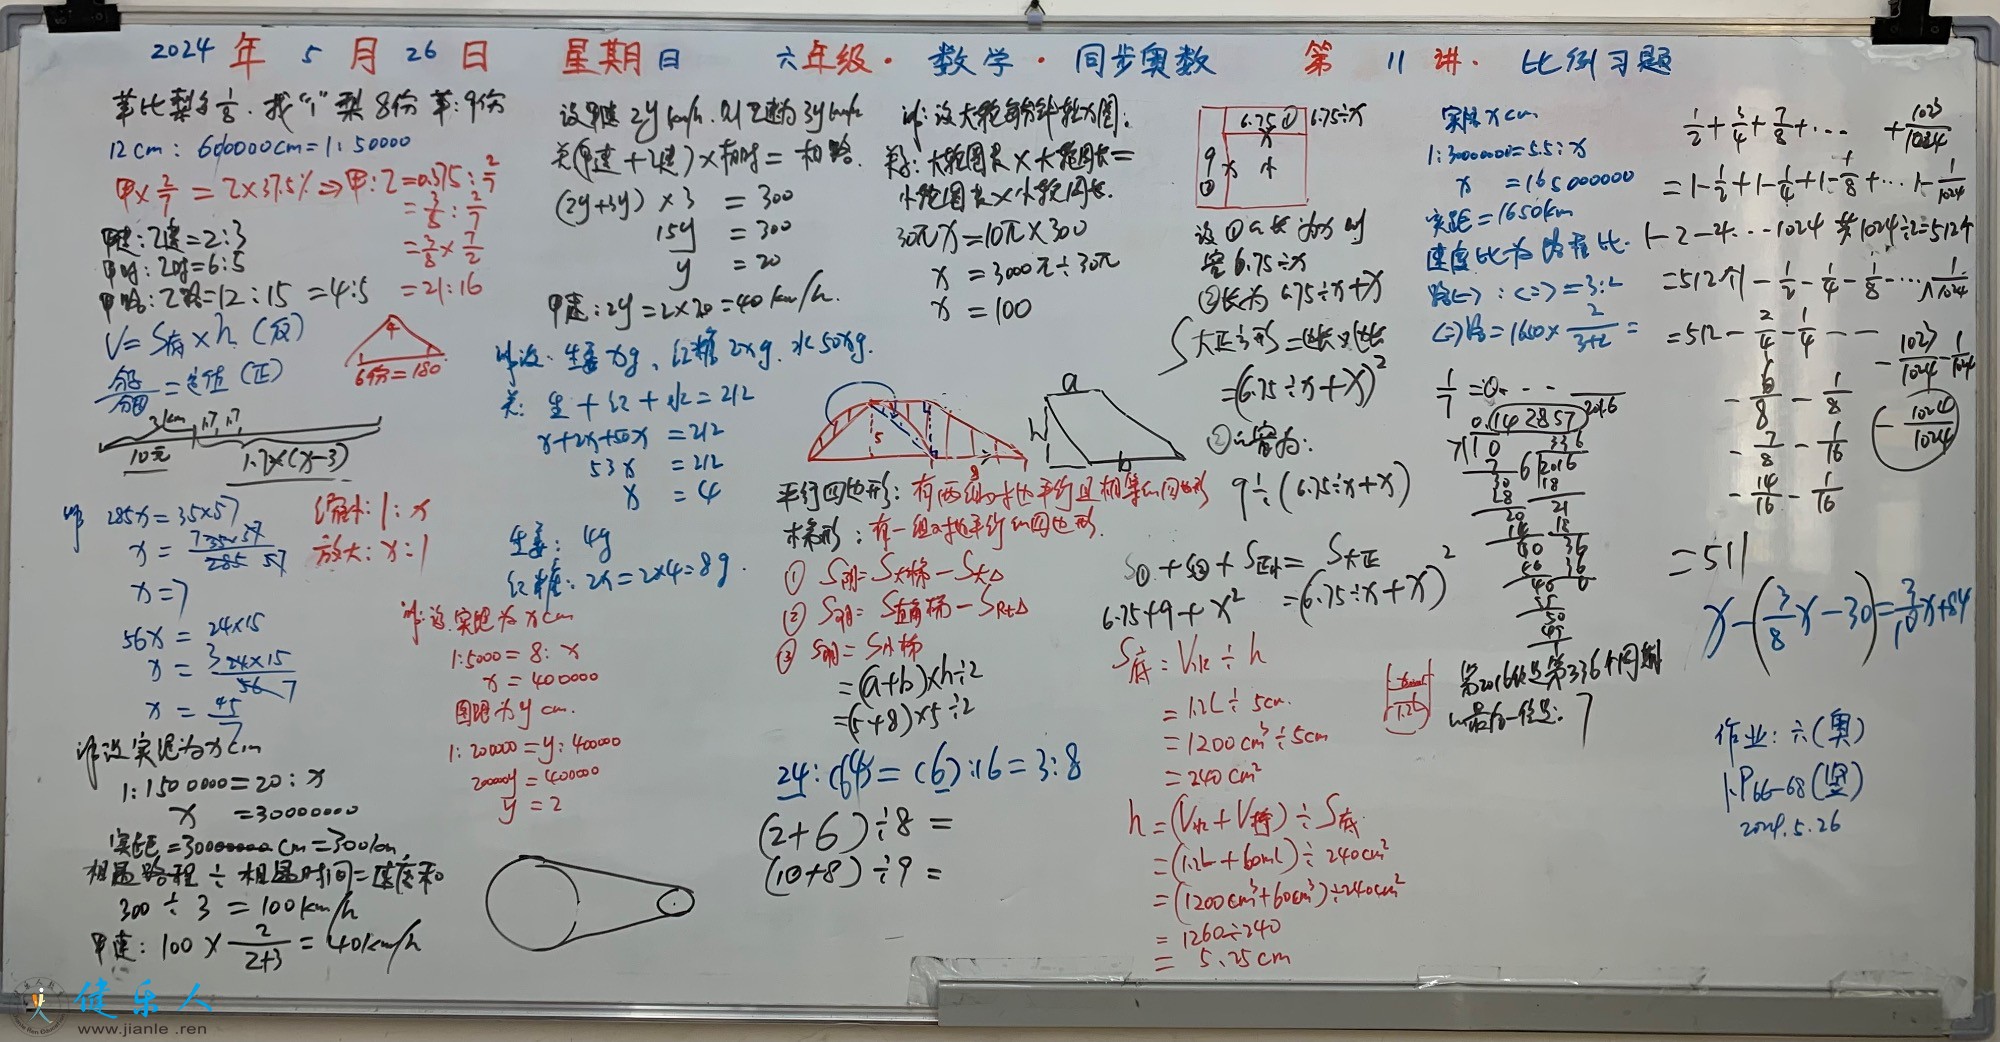 2024年5月26日 星期日 六年级·数学·同步奥数 第11讲·比例习题
苹比梨多1/8.找“1” 梨8份 苹:9份
12cm:600000cm=1:50000
甲×2/7=乙×37.5%⇒甲:乙=0.375:2/7
=3/8:2/7
=3/8×7/2
=21:16
甲速:乙速=2:3
甲时:乙时=6:5
甲路:乙路=12:15=4:5
V=S底×h(反)
分子/分母=定值(正)
4
1
6份=180
3km 1.7 1.7
10元 1.7×(x-3)
解 285x=35×57
x=7
56x=24×15
x=45/7
缩小:1:x
放大:x:1
解:设实距为xcm
1:1500000=20:x
x=30000000
实距=30000000cm=300km
相遇路程÷相遇时间=速度和
300÷3=100km/h
甲速:100×2/(2+3)=40km/h
设甲速2ykm/h.则乙速为3ykm/h
关(甲速+乙速)×相时=相路.
(2y+3y)×3=300
15y=300
y=20
甲速:2y=2×20=40km/h.
解设:生姜xg,红糖2xg.水50xg.
关:生+红+水=212
x+2x+50x=212
53x=212
x=4
生姜:4g
红糖:2x=2×4=8g.
解:设实距为xcm
1:5000=8:x
x=400000
图距为ycm.
1:200000=y:400000
200000y=400000
y=2
解:设大轮每分钟转x圈.
关系:大轮圈长×大轮圈长=
小轮圈长×小轮圈长.
30πx=10π×300
x=3000π÷30π
x=100
5
8
a
h
b
平行四边形:有两组对边平行且相等的四边形
梯形:有一组对边平行的四边形.
① S阴=S大梯-S大△
② S阴=S直角梯-SRt△
③ S阴=S小梯
=(a+b)×h÷2
=(5+8)×5÷2
24:(64)=(6):16=3:8
(2+6)÷8=
(10+8)÷9=
6.75① 6.75÷x
x
9 x 小
②
设①的长为x时
宽6.75÷x
②长为6.75÷x+x
S大正方形=边长×边长
=(6.75÷x+x)²
②的宽为:
9÷(6.75÷x+x)
S①+S②+S正小=S大正
6.75+9+x²=(6.75÷x+x)²
S底=V水÷h
=1.2L÷5cm.
=1200cm³÷5cm
=240cm²
h=(V水+V椅)÷S底
=(1.2L+60ml)÷240cm²
=(1200cm³+60cm³)÷240cm²
=1260÷240
=5.25cm
1.2L
实际xcm
1:30000000=5.5:x
x=165000000
实距=1650km
速度比为路程比.
路(一):(二)=3:2
(二)路=1650×2/(3+2)=
1/7=0.···
0.142857
7)10
7
30
28
20
14
60
56
40
35
50
49
1
2016
336
6)2016
18
21
18
36
36
0
第2016位是第336个周期
的最后一位是:7
1/2+3/4+7/8+···+1023/1024
=1-1/2+1-1/4+1-1/8+···1-1/1024
1-2-4···-1024 共1024÷2=512个
=512个1-1/2-1/4-1/8-···1/1024
=512-2/4-1/4--
-6/8-1/8
-7/8-1/16
-14/16-1/16
-1023/1024-1/1024
-1024/1024
=511
x-(3/8x-30)=3/10x+84
作业:六(奥)
1.P66-68(竖)
2024.5.26
健乐人
www.jianle.ren